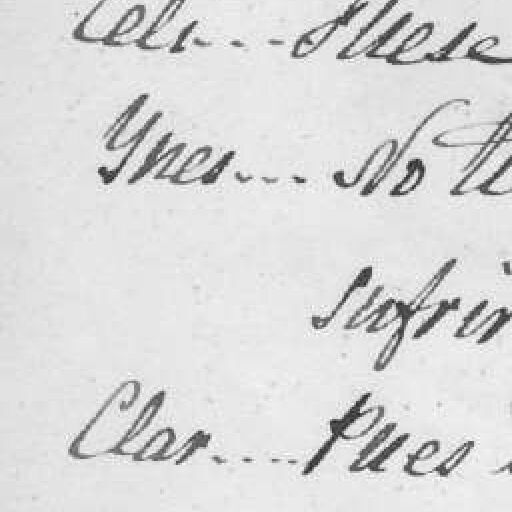 Celi... Puese
Ynes... No te
sufrir
Clar.... Pues